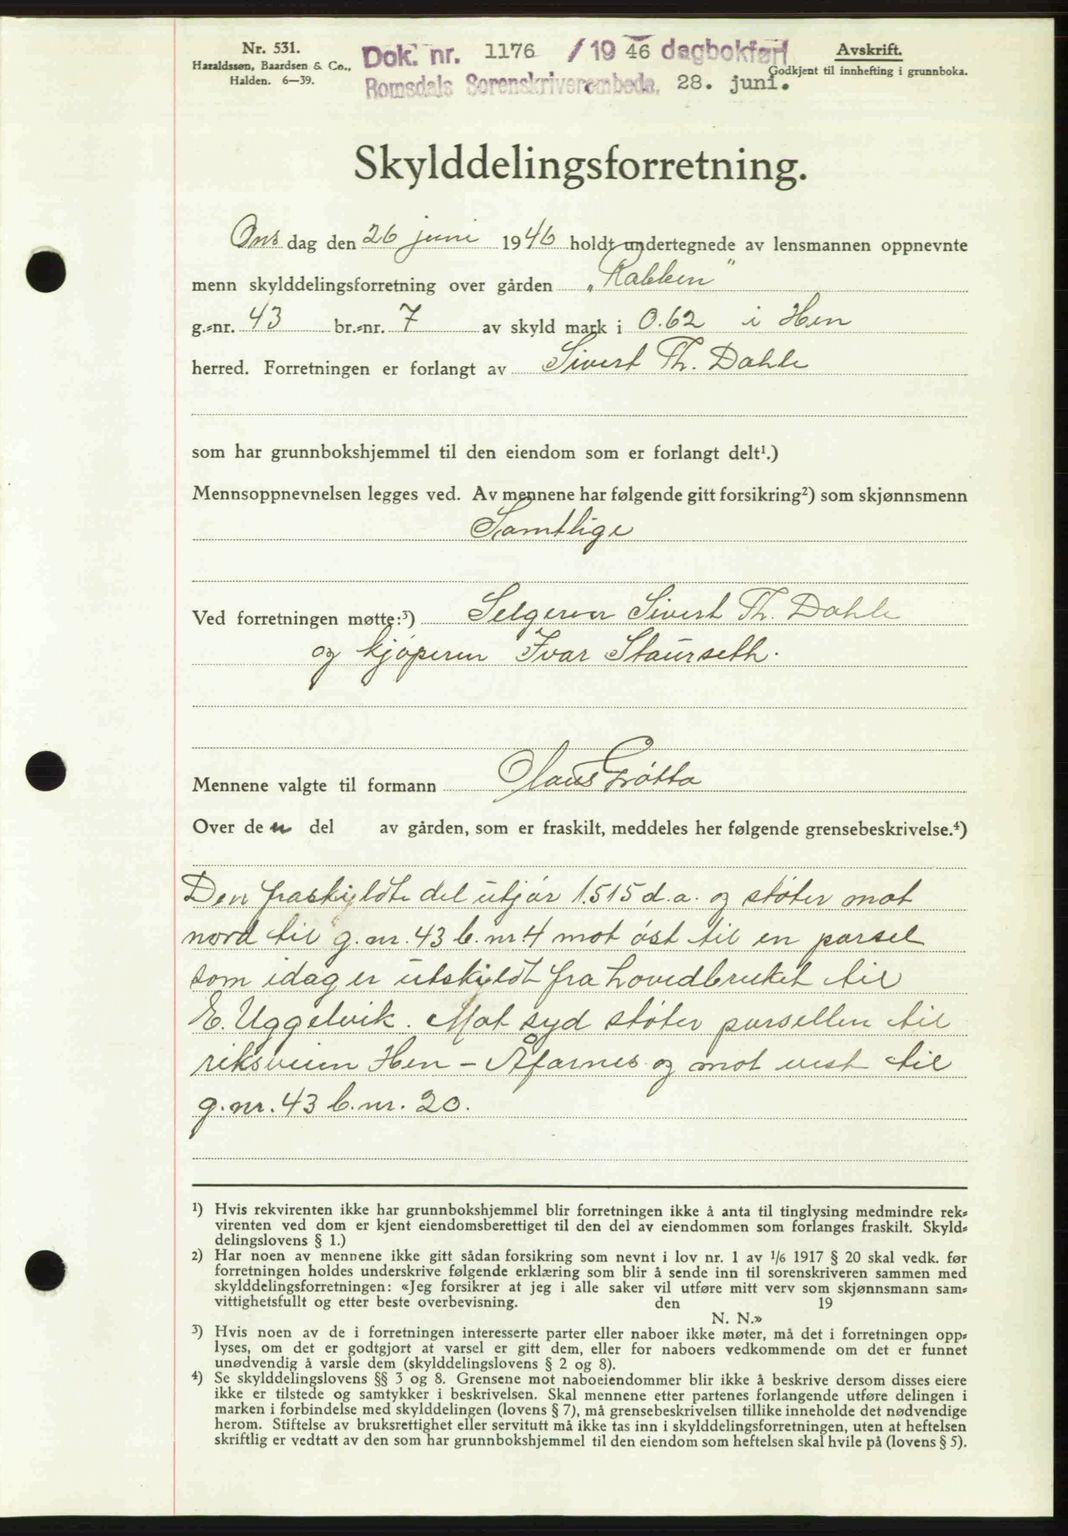 Nr. 531.
Haraldssøn, Baardsen & Co.,
Halden. 6—39.
Dok. nr. 1176 / 19 46 dagbokført
Romsdals Sorenskriverembede, 28. juni.
Avskrift.
Godkjent til innhefting i grunnboka.
Skylddelingsforretning.
Ons dag den 26 juni 1946 holdt undertegnede av lensmannen oppnevnte
menn skylddelingsforretning over gården „Rabben"
g.-nr. 43 br.-nr. 7 av skyld mark i 0.62 i Hen
herred. Forretningen er forlangt av Sivert Th. Dahle
som har grunnbokshjemmel til den eiendom som er forlangt delt¹.)
Mennsoppnevnelsen legges ved. Av mennene har følgende gitt forsikring²) som skjønnsmenn
Samtlige
Ved forretningen møtte:³) Selgeren Sivert Th. Dahle
og kjøperen Ivar Staurseth.
Mennene valgte til formann Claus Grøtta
Over den del av gården, som er fraskilt, meddeles her følgende grensebeskrivelse.⁴)
Den fraskyldte del utjør 1.515 d.a. og støter mot
nord til g.nr. 43 b.nr 4 mot øst til en parsel
som idag er utskyldt fra hovedbruket til
E. Uggelvik. Mot syd støter parsellen til
riksveien Hen – Åfarnes og mot vest til
g.nr. 43 b.nr. 20.
¹) Hvis rekvirenten ikke har grunnbokshjemmel blir forretningen ikke å anta til tinglysing medmindre rek-
virenten ved dom er kjent eiendomsberettiget til den del av eiendommen som forlanges fraskilt. Skyld-
delingslovens § 1.)
²) Har noen av mennene ikke gitt sådan forsikring som nevnt i lov nr. 1 av ¹/₆ 1917 § 20 skal vedk. før
forretningen holdes underskrive følgende erklæring som blir å sende inn til sorenskriveren sammen med
skylddelingsforretningen: «Jeg forsikrer at jeg i alle saker vil utføre mitt verv som skjønnsmann sam-
vittighetsfullt og etter beste overbevisning. den 19
N. N.»
³) Hvis noen av de i forretningen interesserte parter eller naboer ikke møter, må det i forretningen opp-
lyses, om det er godtgjort at varsel er gitt dem, eller for naboers vedkommende om det er funnet
unødvendig å varsle dem (skylddelingslovens § 2 og 8).
⁴) Se skylddelingslovens §§ 3 og 8. Grensene mot naboeiendommer blir ikke å beskrive dersom disses eiere
ikke er tilstede og samtykker i beskrivelsen. Skal mennene etter partenes forlangende utføre delingen i
marken i forbindelse med skylddelingen (lovens § 7), må grensebeskrivelsen tillike inneholde det nødvendige
herom. Stiftelse av bruksrettighet eller servitutt må ikke tas inn i skylddelingsforretningen, uten at heftelsen
skriftlig er vedtatt av den som har grunnbokshjemmel til den eiendom som heftelsen skal hvile på (lovens § 5).